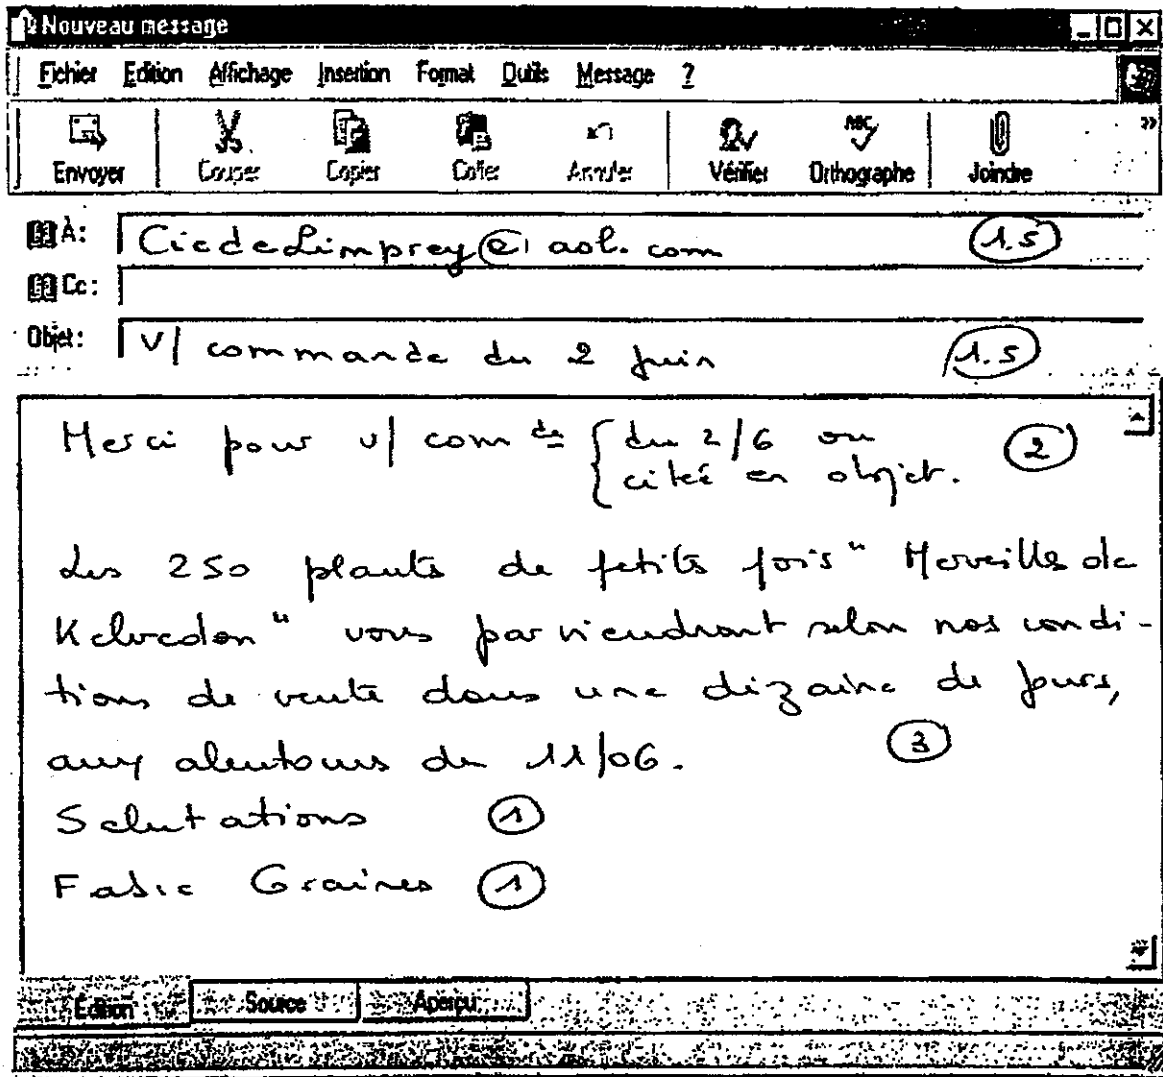 Nouveau message
Fichier Edition Affichage Insertion Format Outils Message ?
Envoyer Couper Copier Coller Annuler Vérifier Orthographe Joindre »
À: CiedeLimprey@aol.com 1.5
Cc:
Objet: V/ commande du 2 juin 1.5
Merci pour v/ comde { du 2/6 ou 2
cité en objet.
Les 250 plants de petits pois "Merveille de
Kelvedon" vous parviendront selon nos condi-
tions de vente dans une dizaine de jours,
aux alentours du 11/06. 3
Salutations 1
Fabre Graines 1
Édition Source Aperçu